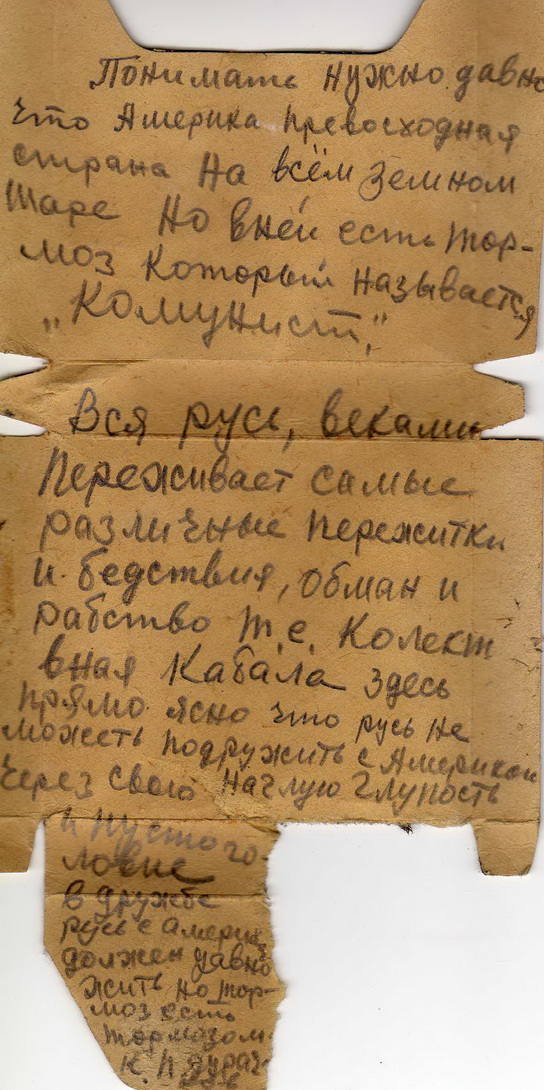 Понимать нужно давно
что Америка превосходная
страна На всём земном
шаре Но вней есть тор-
моз который называется
„Комунист“
Вся русь, веками
Переживает самые
различные пережитки
и бедствия, обман и
рабство т.е. Колект
вная Кабала здесь
прямо ясно что русь не
можеть подружить с Америкой
через свою наглую глупость
и пустого-
ловие
в дружбе
русь с америк
должен давно
жить но тор-
моз есть
тормозом
К.П.